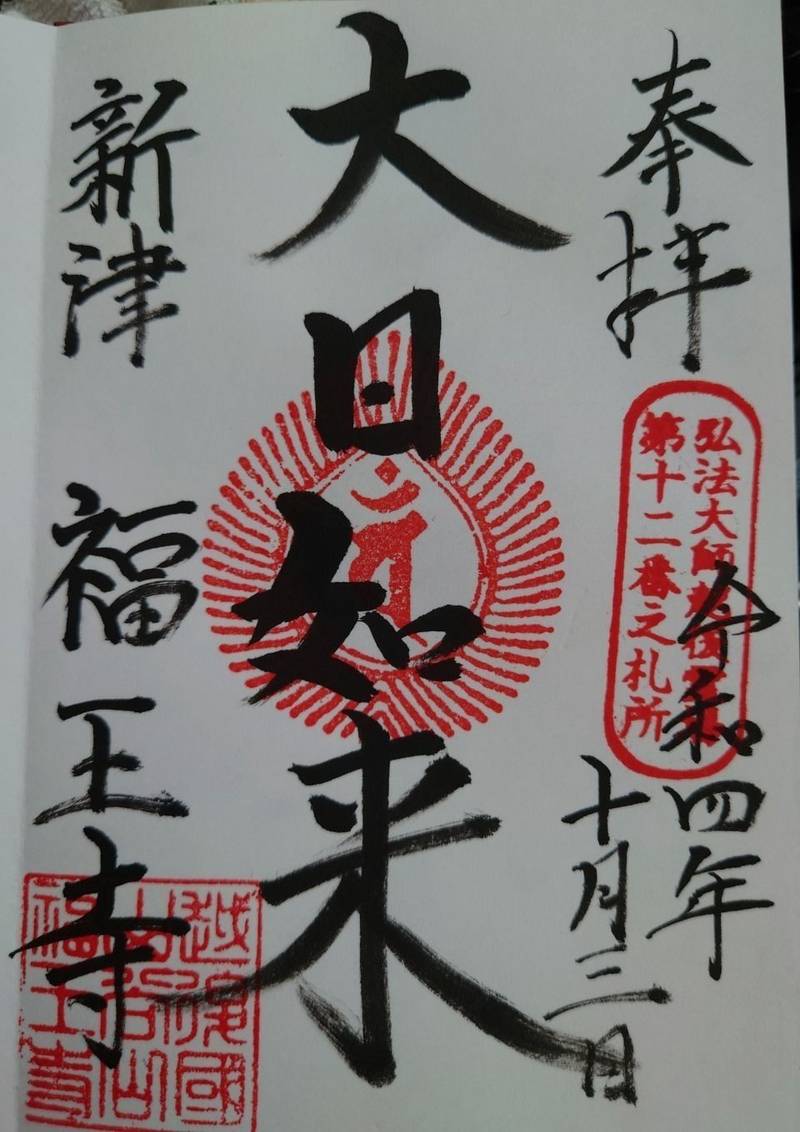 奉拝
弘法大師
第十二番之札所
令和四年
十月三日
大日如来
新津 福王寺
越後國
福王寺